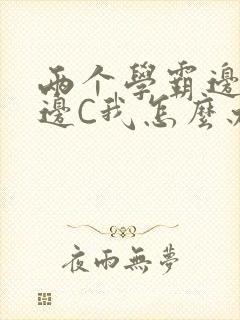 两个學霸邊
邊C我怎麼
夜雨無夢